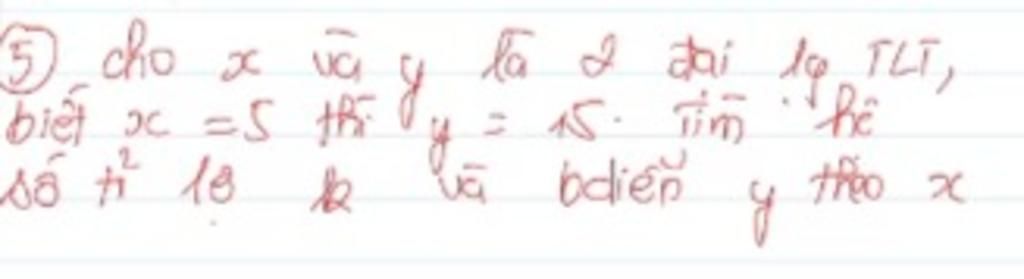 ⑤ cho x và y là 2 đại lg TLT,
biết x = 5 thì y = 15. Tìm hệ
số tỉ lệ k và bdiễn y theo x